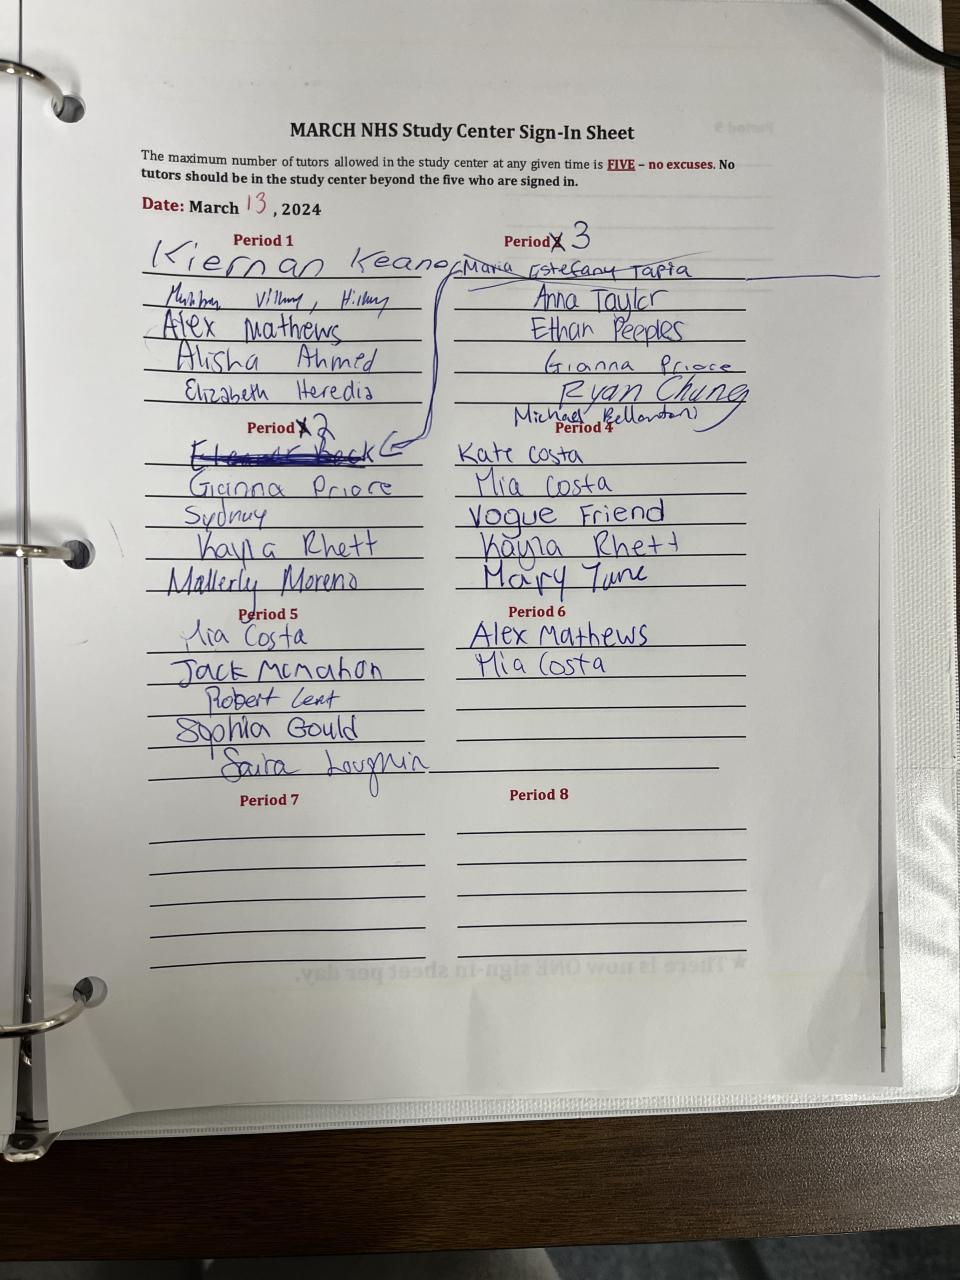 MARCH NHS Study Center Sign-In Sheet
The maximum number of tutors allowed in the study center at any given time is FIVE – no excuses. No
tutors should be in the study center beyond the five who are signed in.
Date: March 13, 2024
Period 1
Kiernan Keane
Hillary
Alex Mathews
Alisha Ahmed
Elizabeth Heredia
Period 3
Maria Estefany Tapia
Anna Taylor
Ethan Peeples
Gianna Priore
Ryan Chung
Michael Bellantoni
Period 2
Gianna Priore
Sydney
Kayla Rhett
Mallerly Moreno
Period 4
Kate Costa
Mia Costa
Vogue Friend
Kayla Rhett
Mary Jane
Period 5
Mia Costa
Jack McMahon
Robert Lent
Sophia Gould
Saira Loughlin
Period 6
Alex Mathews
Mia Costa
Period 7
Period 8